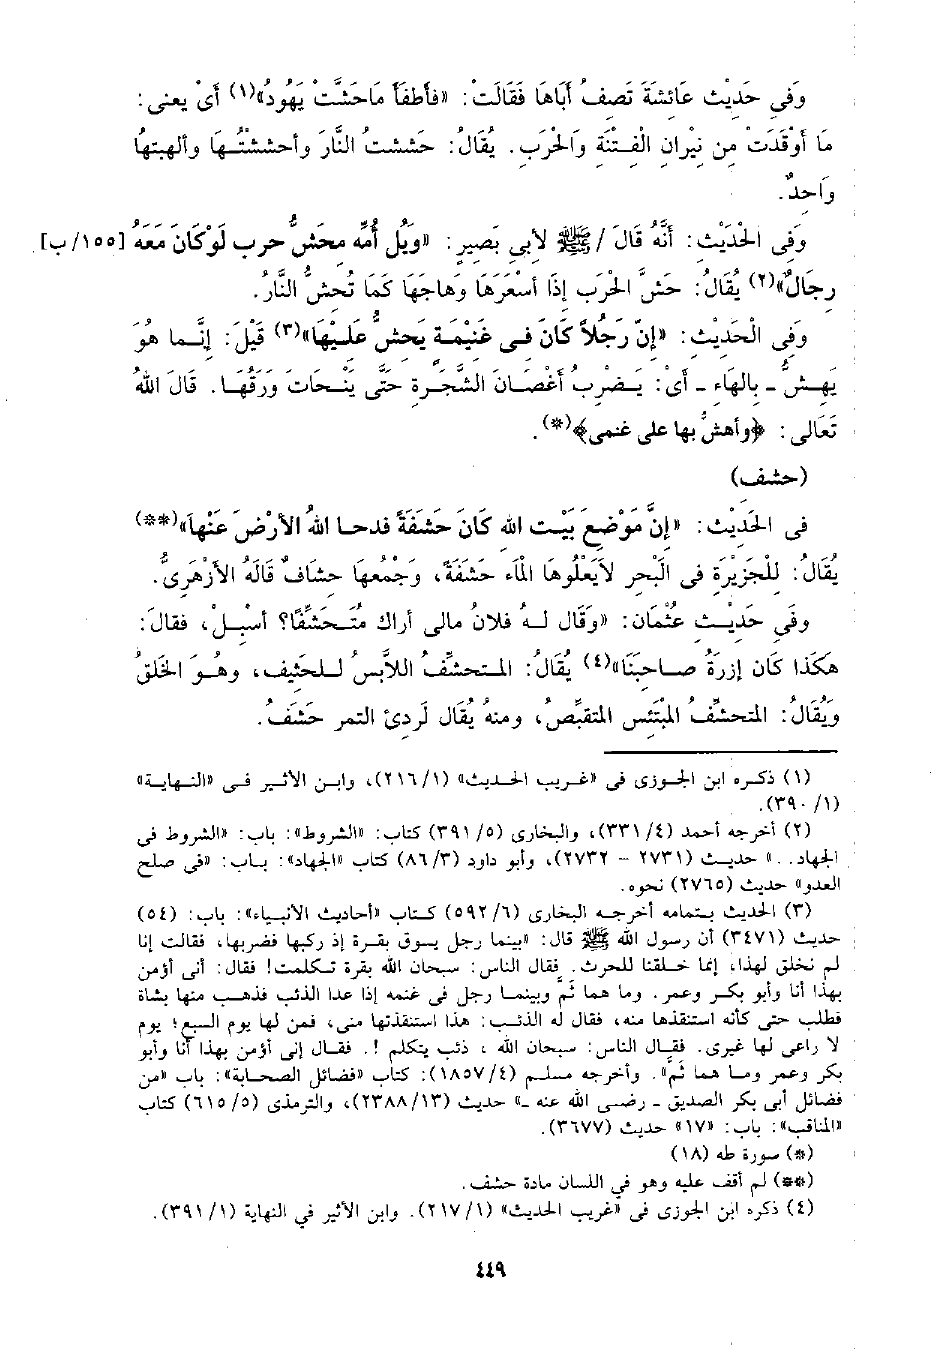 وَفِى حَدِيْثِ عَائِشَةَ تَصِفُ أَبَاهَا فَقَالَتْ: «فأَطفَأَ مَاحَشَّتْ يَهُودُ»(١) أَىْ يعنى:
مَا أَوْقَدَتْ مِن نِيْرانِ الْفِتْنَةِ وَالْحَرَبِ. يُقَالُ: حَشَشتُ النَّارَ وأَحششْتُهَا وألهبتهُا
وَاحِدٌ.
وَفِى الْحَدِيْثِ: أَنَّهُ قَالَ / ﷺ لأبِى بَصِيرٍ: «ويَلُ أُمِّه مِحَشُّ حربٍ لَوْكَانَ مَعَهُ [١٥٥/ب]
رِجَالٌ»(٢) يُقَالُ: حَشَّ الْحَرَبَ إِذَا أسْعَرَهَا وَهاجَهَا كَمَا تُحَشُّ النَّارُ.
وَفِى الْحَدِيْثِ: «إِنَّ رَجُلاً كَانَ فِى غَنِيْمَةٍ يَحشُّ عَلَيْهَا»(٣) قِيْلَ: إِنَّما هُوَ
يَهِشُّ - بِالهَاءِ - أَىْ: يَضْرِبُ أَغْصَانَ الشَّجَرةِ حَتَّى يَنْحَاتَ وَرَقُهَا. قَالَ اللهُ
تَعَالى: ﴿وأهشُّ بها على غنمى﴾(*).
(حشف)
فِى الحَدِيْثِ: «إِنَّ مَوْضِعَ بَيْتِ اللهِ كَانَ حَشَفَةً فدحا اللهُ الأَرْضَ عَنْهَا»(**)
يُقَالُ: لِلْجَزِيْرَةِ فى الْبحرِ لاَيَعْلُوها المَاء حَشَفَةٌ، وَجَمْعُهَا حِشَافٌ قَالَهُ الأَزْهَرِىُّ.
وفَي حَدِيْثِ عُثْمَان: «وَقَال لهُ فلانٌ مالى أراك مُتَحَشِّفًا؟ أَسْبِلْ، فقالَ:
هكَذا كَان إِزرَةُ صاحِبَنَا»(٤) يُقَالُ: المتحشِّفُ اللاَّبسُ للحَشِيف، وهُو الخَلقُ
وَيُقَالُ: المتحشِّفُ المُبْتَئِس المتقبِّضُ، ومنهُ يُقَال لَردِئِ التمرِ حَشَفُ.
(١) ذكره ابن الجوزى فى «غريب الحديث» (٢١٦/١)، وابن الأثير فى «النهاية»
(٣٩٠/١).
(٢) أخرجه أحمد (٣٣١/٤)، والبخارى (٣٩١/٥) كتاب: «الشروط»: باب: «الشروط فى
الجهاد...» حديث (٢٧٣١ - ٢٧٣٢)، وأبو داود (٨٦/٣) كتاب «الجهاد»: باب: «فى صلح
العدو» حديث (٢٧٦٥) نحوه.
(٣) الحديث بتمامه أخرجه البخارى (٥٩٢/٦) كتاب «أحاديث الأنبياء»: باب: (٥٤)
حديث (٣٤٧١) أن رسول الله ﷺ قال: «بينما رجل يسوق بقرة إذ ركبها فضربها، فقالت إنا
لم نخلق لهذا، إنما خلقنا للحرث. فقال الناس: سبحان الله بقرة تكلمت! فقال: أنى أؤمن
بهذا أنا وأبو بكر وعمر. وما هما ثَمَّ وبينما رجل فى غنمه إذا عدا الذئب فذهب منها بشاة
فطلب حتى كأنه استنقذها منه، فقال له الذئب: هذا استنقذتها منى، فمن لها يوم السبع؛ يوم
لا راعى لها غيرى. فقال الناس: سبحان الله ، ذئب يتكلم !. فقال إنى أؤمن بهذا أنا وأبو
بكر وعمر وما هما ثَمَّ». وأخرجه مسلم (١٨٥٧/٤): كتاب «فضائل الصحابة»: باب «من
فضائل أبى بكر الصديق - رضى الله عنه -» حديث (٢٣٨٨/١٣)، والترمذى (٦١٥/٥) كتاب
«المناقب»: باب: «١٧» حديث (٣٦٧٧).
(*) سورة طه (١٨)
(**) لم أقف عليه وهو في اللسان مادة حشف.
(٤) ذكره ابن الجوزى فى «غريب الحديث» (٢١٧/١). وابن الأثير في النهاية (٣٩١/١).
٤٤٩